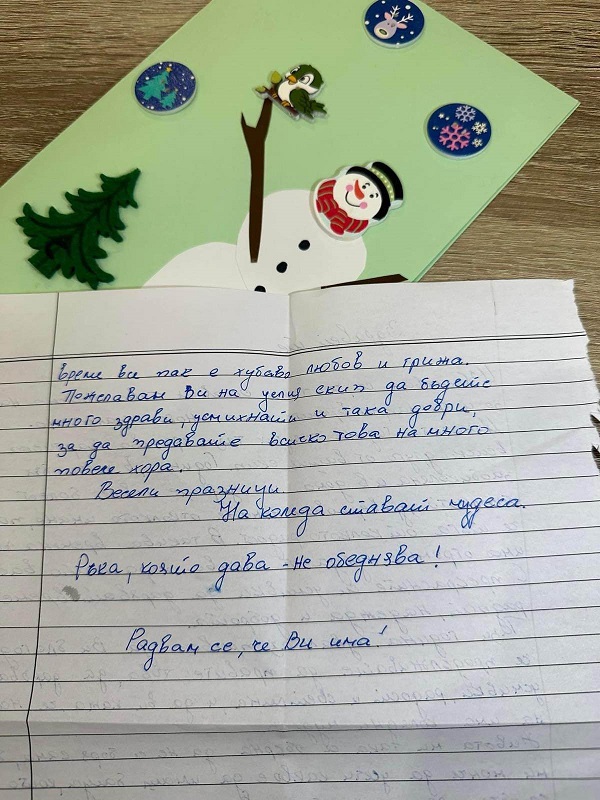 време ви пак е хубаво любов и грижа.
Пожелавам Ви на целия екип да бъдете
много здрави, усмихнати и така добри,
за да предавате всичко това на много
повече хора.
Весели празници.
На коледа стават чудеса.
Ръка, която дава - не обеднява!
Радвам се, че Ви има!